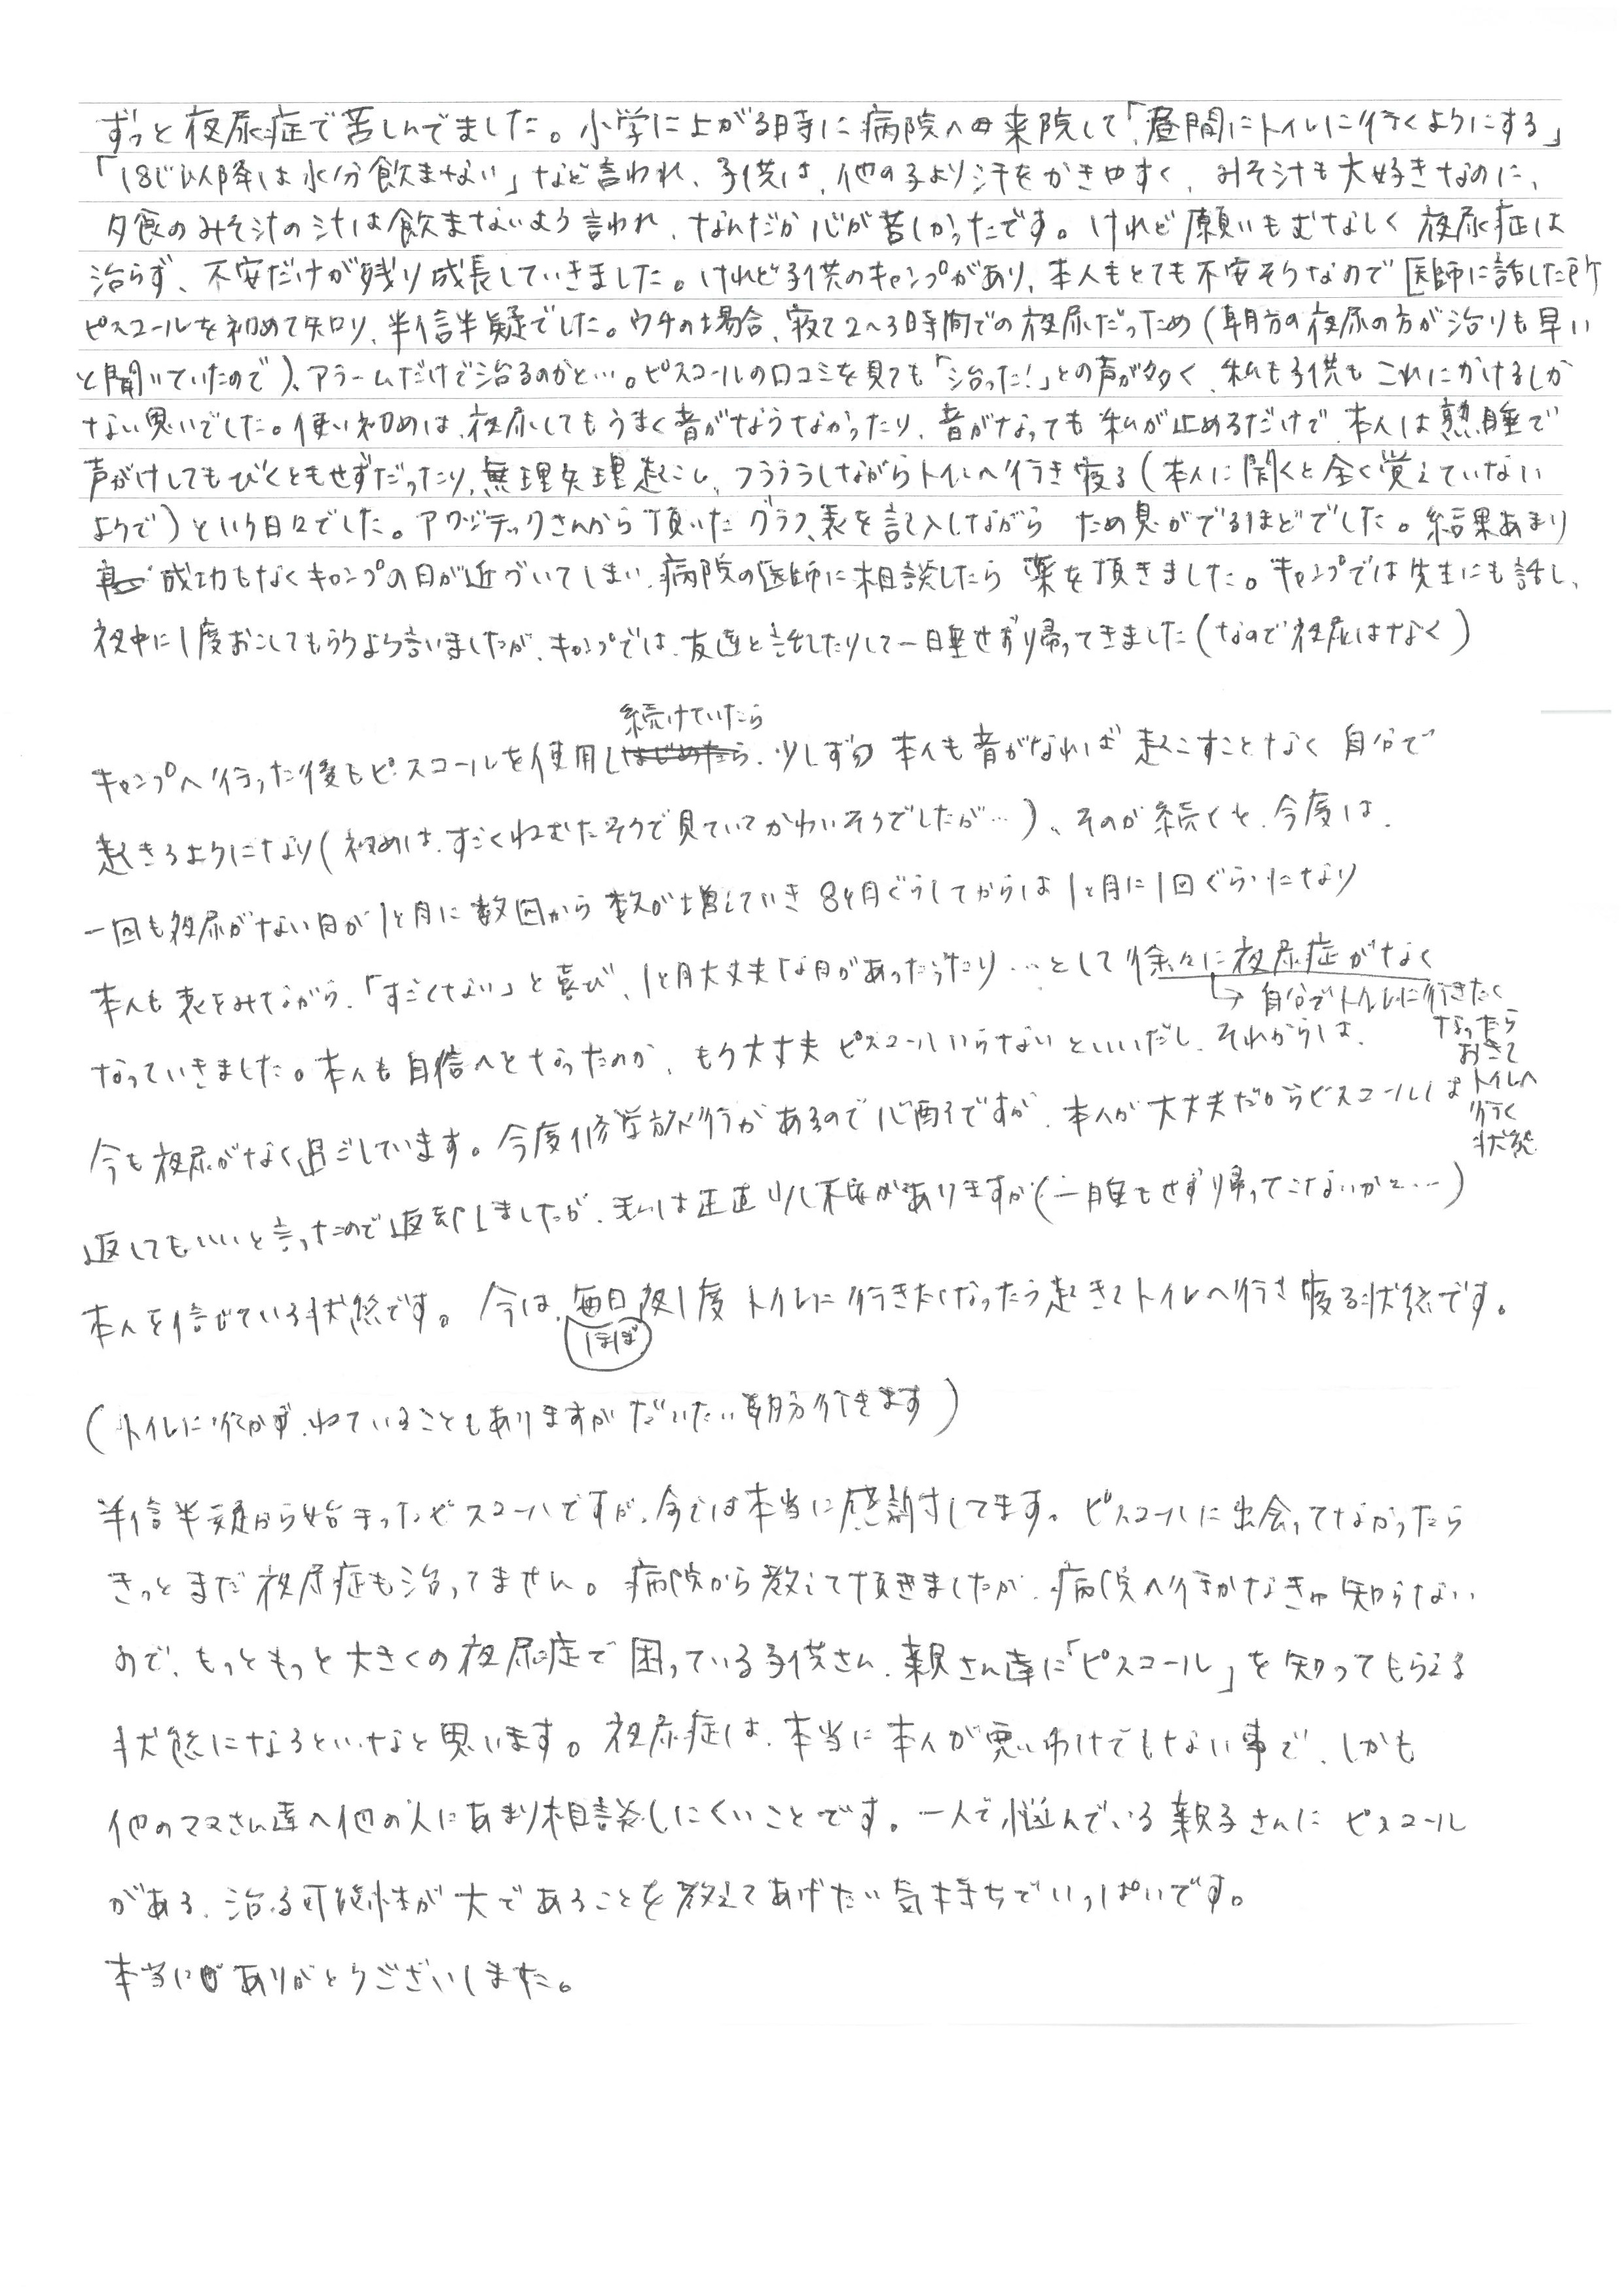 ずっと夜尿症で苦しんでました。小学に上がる時に病院へ毎来院して「昼間にトイレに行くようにする」
「18じ以降は水分飲まない」など言われ、子供は、他の子より汗をかきやすく、みそ汁も大好きなのに、
夕食のみそ汁の汁は飲まないよう言われ、なんだか心が苦しかったです。けれど願いもむなしく夜尿症は
治らず、不安だけが残り成長していきました。けれど子供のキャンプがあり、本人もとても不安そうなので医師に話した所
ピスコールを初めて知り、半信半疑でした。ウチの場合、寝て2~3時間での夜尿だっため(朝方の夜尿の方が治りも早い
と聞いていたので)、アラームだけで治るのかと…。ピスコールの口コミを見ても「治った!」との声が多く、私も子供もこれにかけるしか
ない思いでした。使い初めは、夜尿してもうまく音がならなかったり、音がなっても私が止めるだけで、本人は熟睡で
声がけしてもびくともせずだったり、無理矢理起こし、フラフラしながらトイレへ行き寝る(本人に聞くと全く覚えていない
ようで)という日々でした。アワジテックさんから頂いたグラフ、表を記入しながら ため息がでるほどでした。結果あまり
成功もなくキャンプの日が近づいてしまい、病院の医師に相談したら 薬を頂きました。キャンプでは先生にも話し、
夜中に1度おこしてもらうよう言いましたが、キャンプでは、友達と話したりして一睡せず帰ってきました(なので夜尿はなく)
キャンプへ行った後もピスコールを使用し続けていたら、少しずつ 本人も音がなれば 起こすことなく 自分で
起きるようになり(初めは、すごくねむたそうで見ていてかわいそうでしたが…)、そのが続くと、今度は、
一回も夜尿がない日が1ヶ月に数回から数が増していき 8ヶ月ぐらいしてからは1ヶ月に1回ぐらいになり
本人も表をみながら、「すごくない」と喜び、1ヶ月大丈夫な月があったらったり…として徐々に夜尿症がなく
→自分でトイレに行きたくなったらおきてトイレへ行く状態
なっていきました。本人も自信へとなったのか、もう大丈夫 ピスコールいらない といいだし、それからは、
今も夜尿がなく過ごしています。今度修学旅行があるので心配ですが、本人が大丈夫だからピスコールは
返してもいいと言ったので返却しましたが、私は正直少し不安がありますが(一睡もせず帰ってこないかと…)
本人を信じている状態です。今は、毎日夜1度 トイレに行きたくなったら起きてトイレへ行き寝る状態です。
ほぼ
(トイレに行かず、ねていることもありますがだいたい朝方行きます)
半信半疑から始まったピスコールですが、今では本当に感謝してます。ピスコールに出会ってなかったら
きっとまだ夜尿症も治ってません。病院から教えて頂きましたが、病院へ行かなきゃ知らない
ので、もっともっと大きくの夜尿症で困っている子供さん、親さん達に「ピスコール」を知ってもらえる
状態になるといいなと思います。夜尿症は、本当に本人が悪いわけでもない事で、しかも
他のママさん達へ他の人にあまり相談しにくいことです。一人で悩んでいる親子さんに ピスコール
がある、治る可能性が大であることを教えてあげたい気持ちでいっぱいです。
本当にありがとうございました。